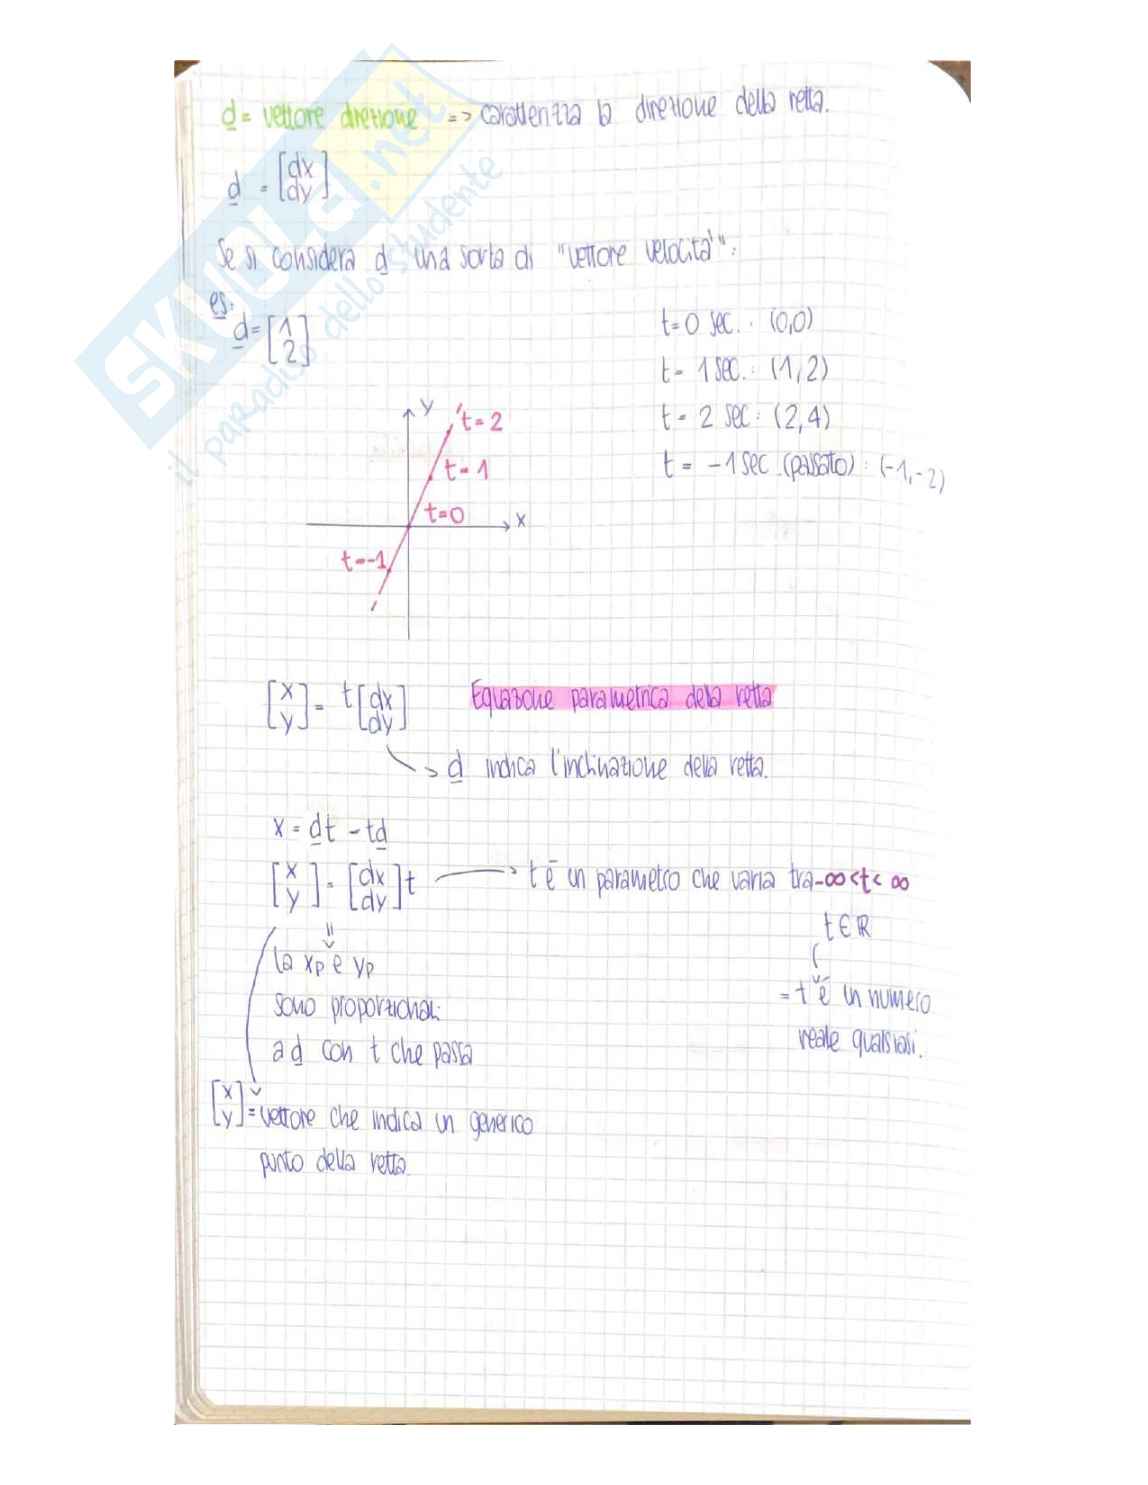 d = vettore direzione => caratterizza la direzione della retta.
d = [dx dy]
Se si considera d una sorta di "vettore velocità":
es.
d = [1 2]
t=0 sec. : (0,0)
t= 1 sec. : (1,2)
t= 2 sec : (2,4)
t = -1 sec (passato) : (-1,-2)
y
t=2
t=1
t=0
x
t=-1
[x y] = t [dx dy] Equazione parametrica della retta
d indica l'inclinazione della retta.
x = dt = td
[x y] = [dx dy] t → t è un parametro che varia tra -∞<t<∞
t∈ℝ
la xp e yp
= t è un numero
sono proporzionali
reale qualsiasi.
a d con t che passa
[x y] = vettore che indica un generico
punto della retta.
SKUOLA.net
il paradiso dello studente